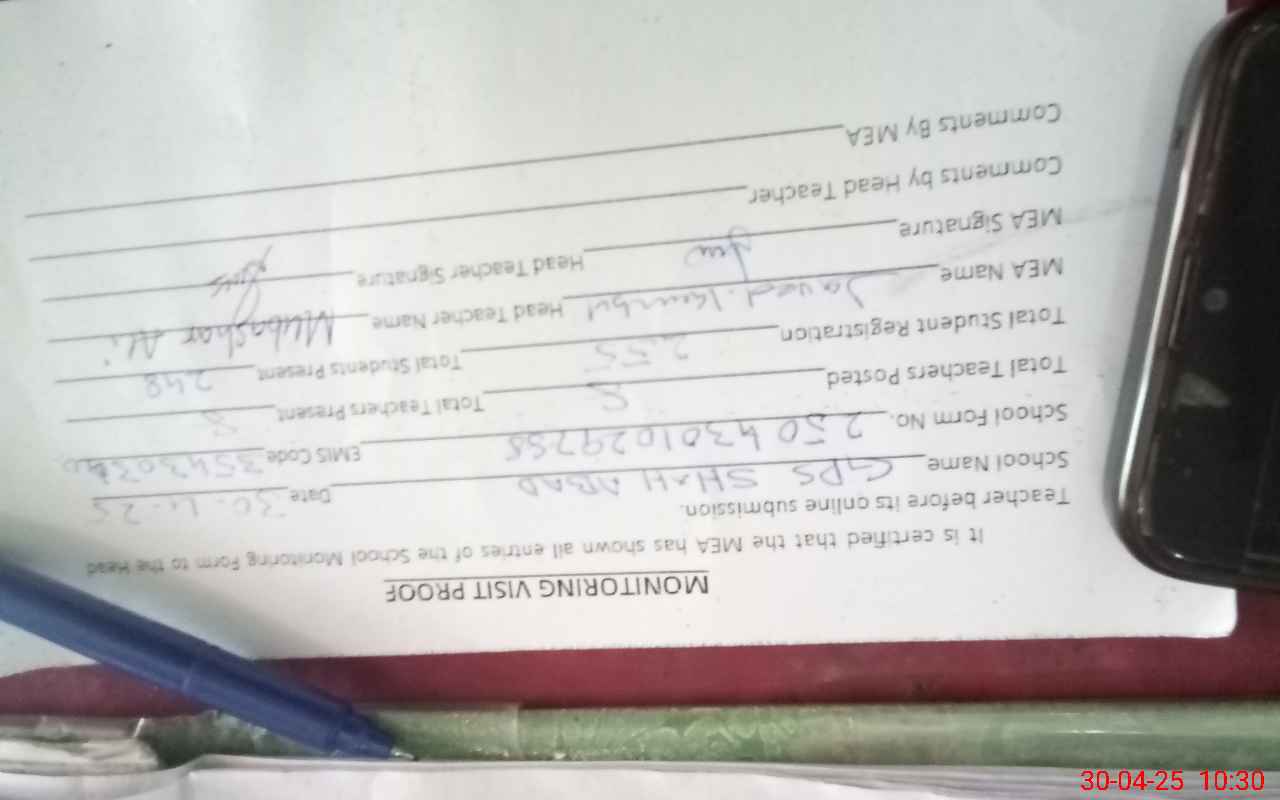 MONITORING VISIT PROOF
It is certified that the MEA has shown all entries of the School Monitoring Form to the Head
Teacher before its online submission.
School Name GPS SHAH ABAD Date 30-4-25
School Form No. EMIS Code
Total Teachers Posted 8 Total Teachers Present 8
Total Student Registration 255 Total Students Present 248
MEA Name Javed Head Teacher Name Mubashar Ali
MEA Signature Head Teacher Signature
Comments by Head Teacher
Comments By MEA
30-04-25 10:30